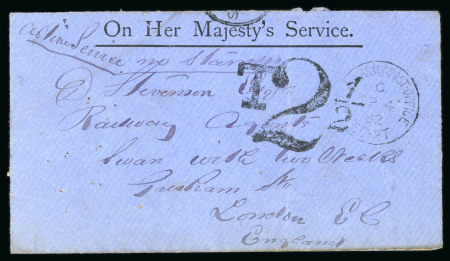 On Her Majesty's Service.
Active Service no stamps
T 2 1/2
D. Stevenson
Railway Agents
Swan with two Necks
Gresham St
London E C
England